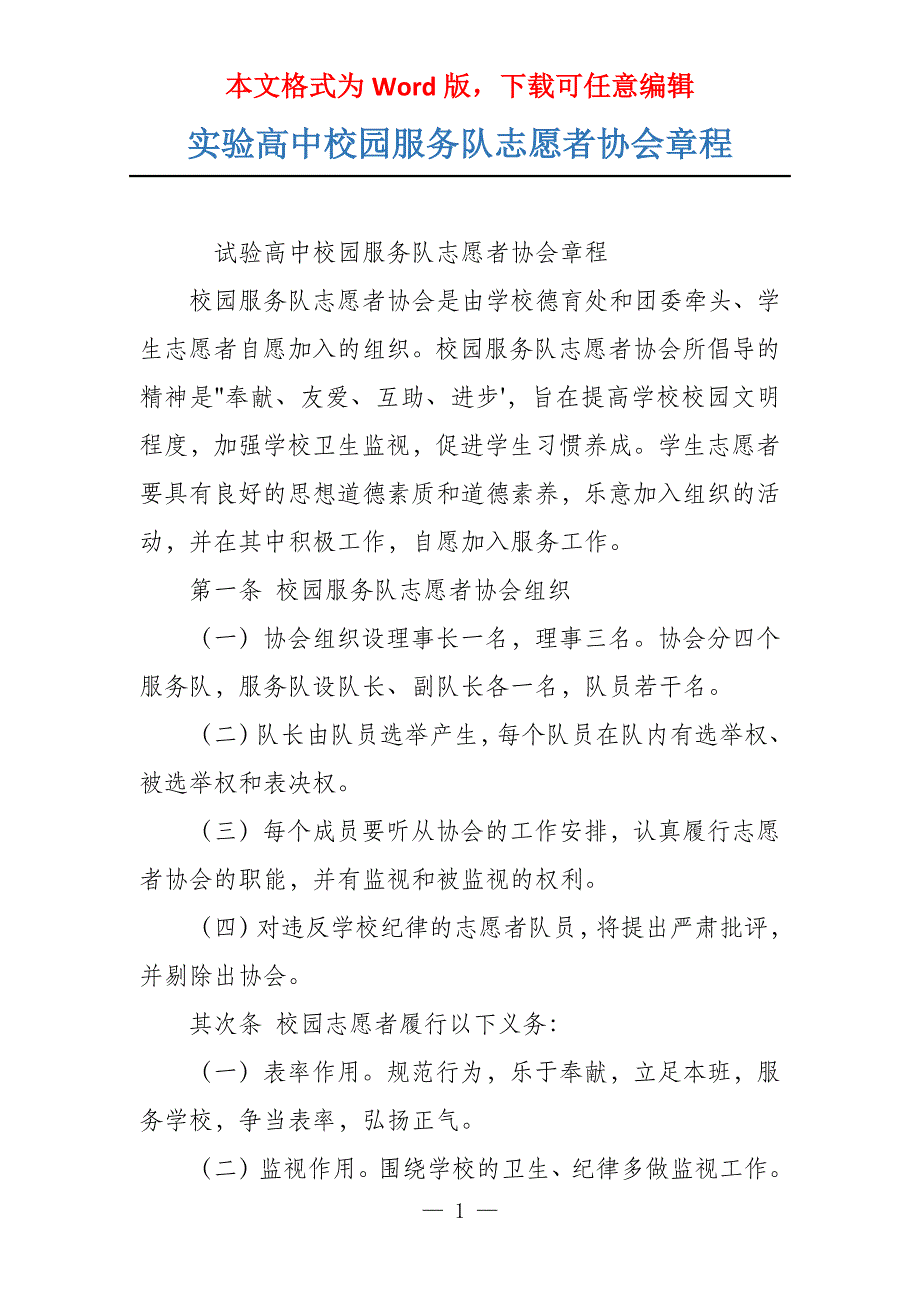 本文格式为 Word 版，下载可任意编辑
实验高中校园服务队志愿者协会章程
试验高中校园服务队志愿者协会章程
校园服务队志愿者协会是由学校德育处和团委牵头、学
生志愿者自愿加入的组织。校园服务队志愿者协会所倡导的
精神是"奉献、友爱、互助、进步'，旨在提高学校校园文明
程度，加强学校卫生监视，促进学生习惯养成。学生志愿者
要具有良好的思想道德素质和道德素养，乐意加入组织的活
动，并在其中积极工作，自愿加入服务工作。
第一条 校园服务队志愿者协会组织
（一）协会组织设理事长一名，理事三名。协会分四个
服务队，服务队设队长、副队长各一名，队员若干名。
（二）队长由队员选举产生，每个队员在队内有选举权、
被选举权和表决权。
（三）每个成员要听从协会的工作安排，认真履行志愿
者协会的职能，并有监视和被监视的权利。
（四）对违反学校纪律的志愿者队员，将提出严肃批评，
并剔除出协会。
其次条 校园志愿者履行以下义务：
（一）表率作用。规范行为，乐于奉献，立足本班，服
务学校，争当表率，弘扬正气。
（二）监视作用。围绕学校的卫生、纪律多做监视工作。
— 1 —